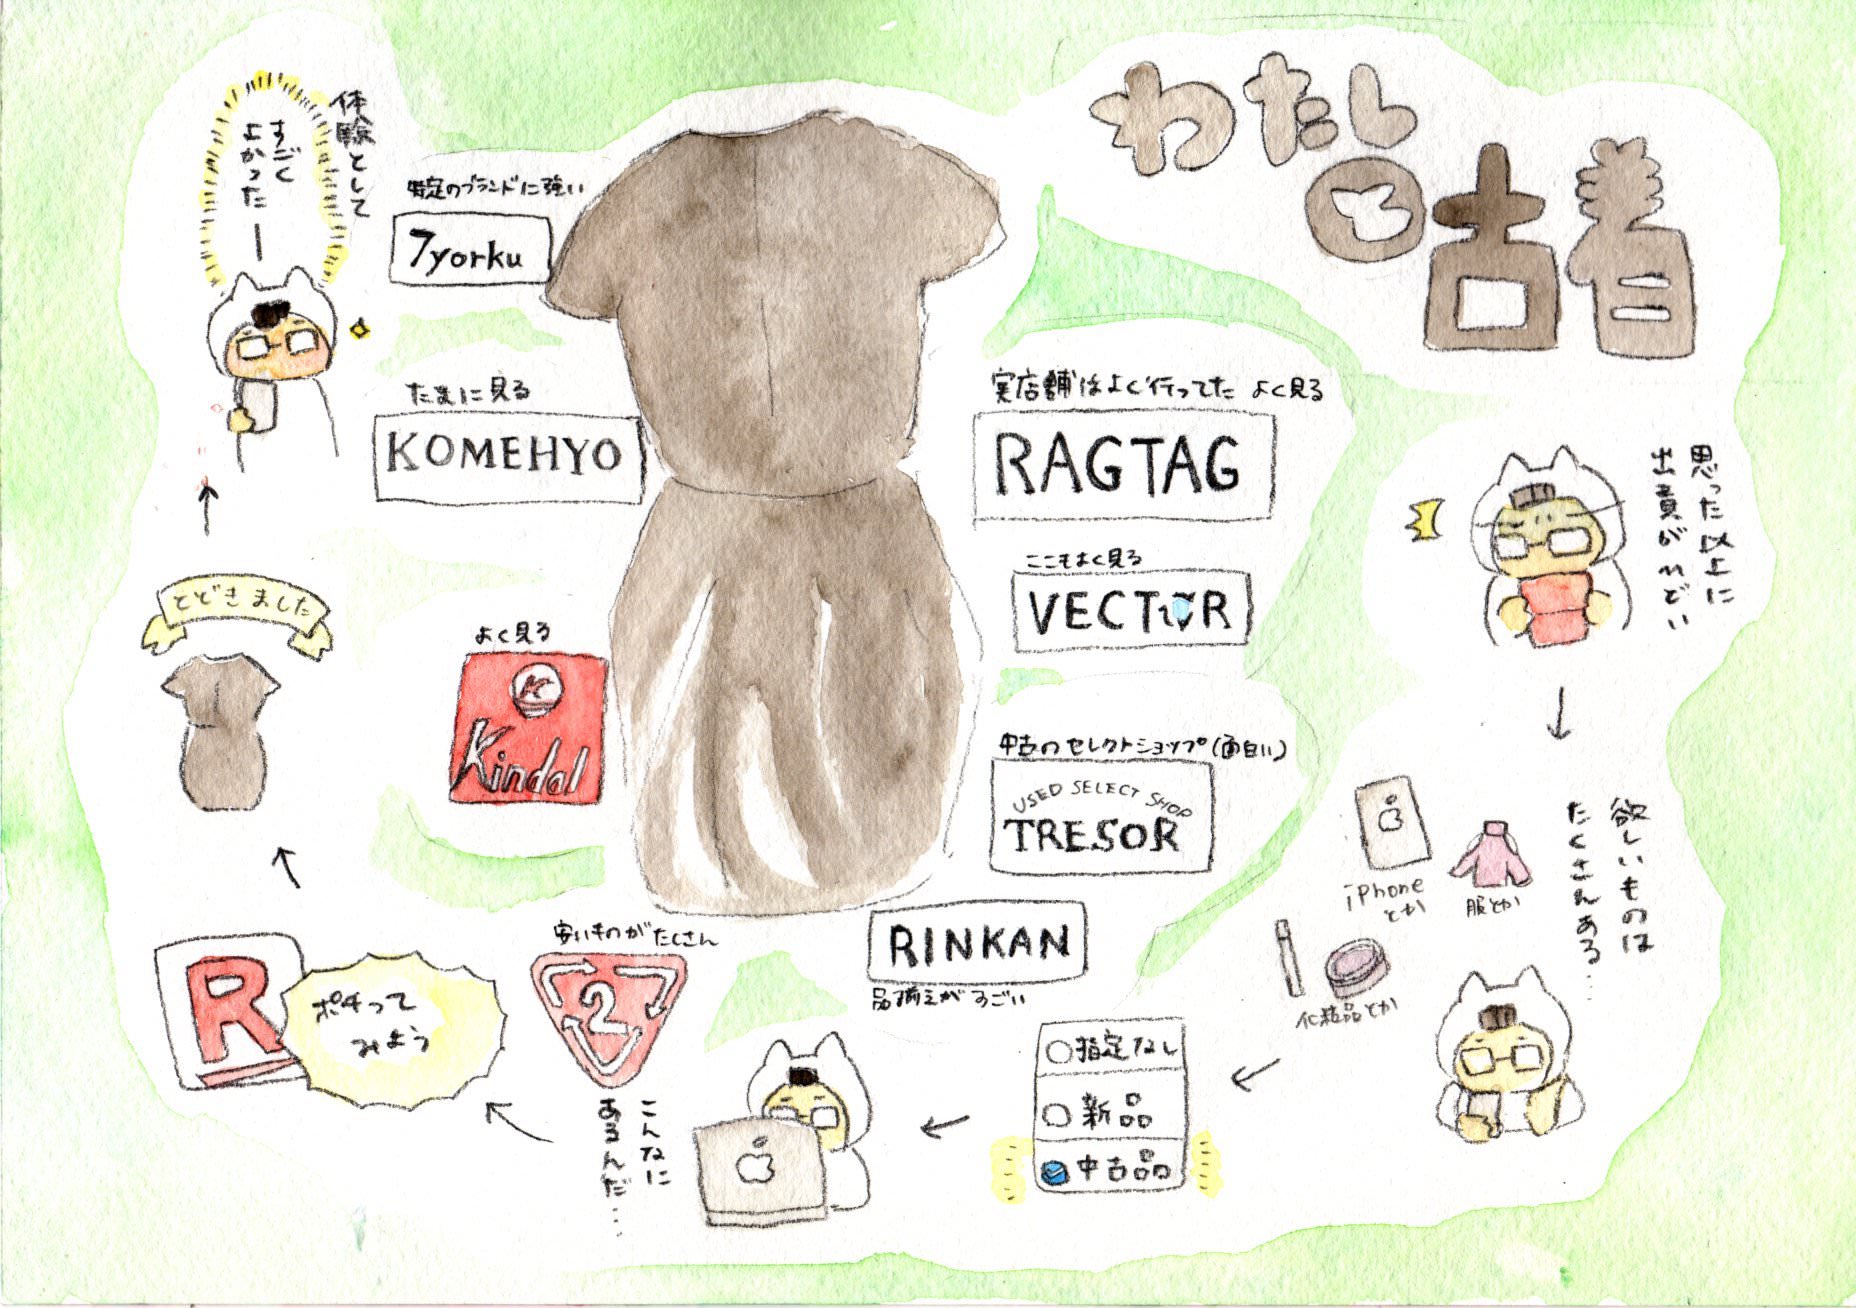 わたし
と古着
思った以上に
出費がひどい
欲しいものは
たくさんある…
iPhone
とか
服とか
化粧品とか
指定なし
新品
中古品
こんなに
あるんだ…
R
ポチって
みよう
とどきました
体験として
すごく
よかったー
特定のブランドに強い
7yorku
たまに見る
KOMEHYO
よく見る
K
Kindal
安いものがたくさん
2
実店舗はよく行ってた よく見る
RAGTAG
ここもよく見る
VECTOR
中古のセレクトショップ(面白い)
USED SELECT SHOP
TRESOR
RINKAN
品揃えがすごい